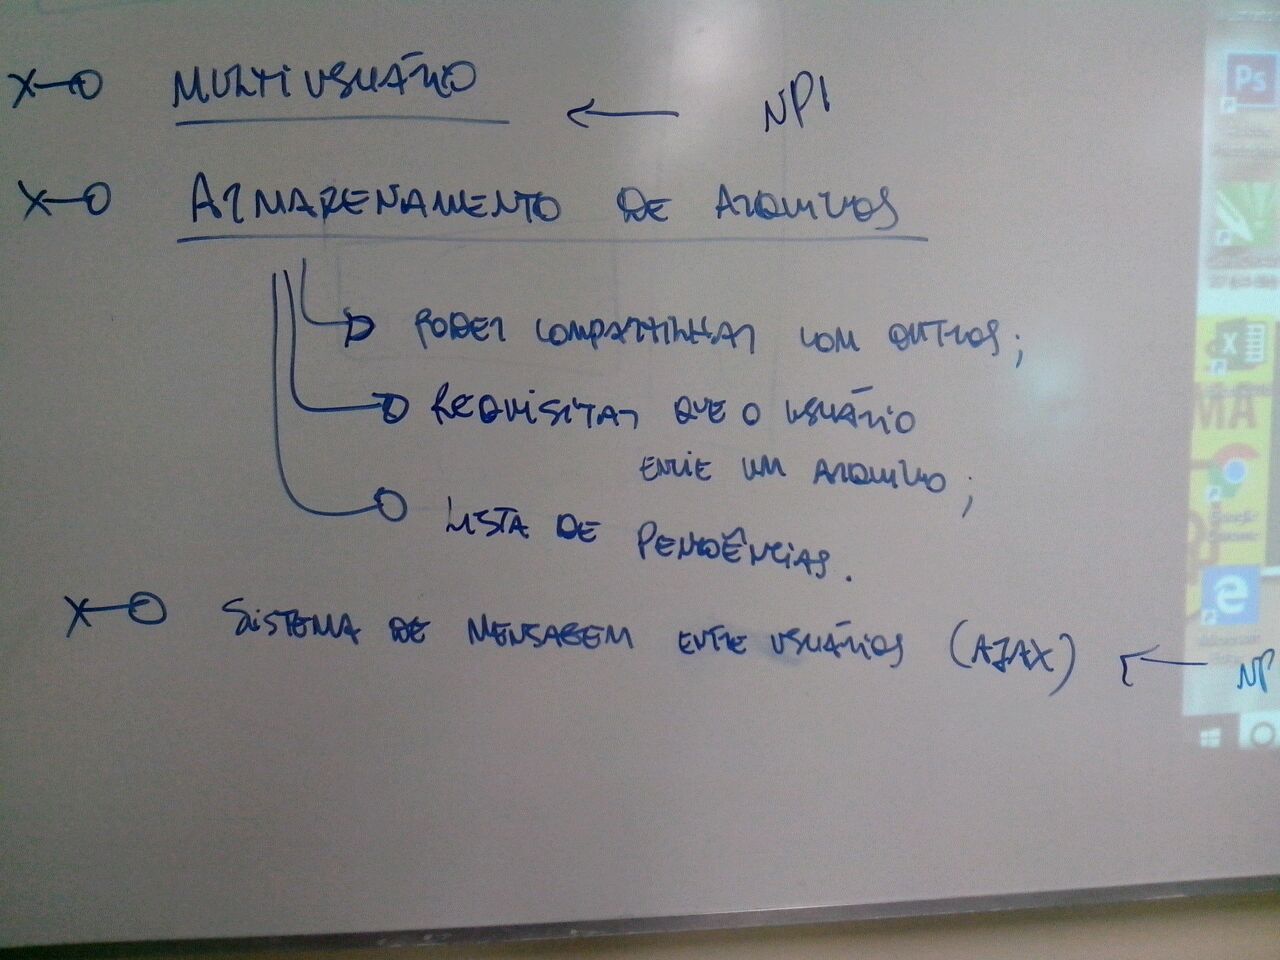 X—O MULTIUSUÁRIO ← NP1
X—O ARMAZENAMENTO DE ARQUIVOS
PODER COMPARTILHAR COM OUTROS;
REQUISITAR QUE O USUÁRIO
ENVIE UM ARQUIVO;
LISTA DE PENDÊNCIAS.
X—O SISTEMA DE MENSAGEM ENTRE USUÁRIOS (AJAX) ← NP
Ps
X
MA
e